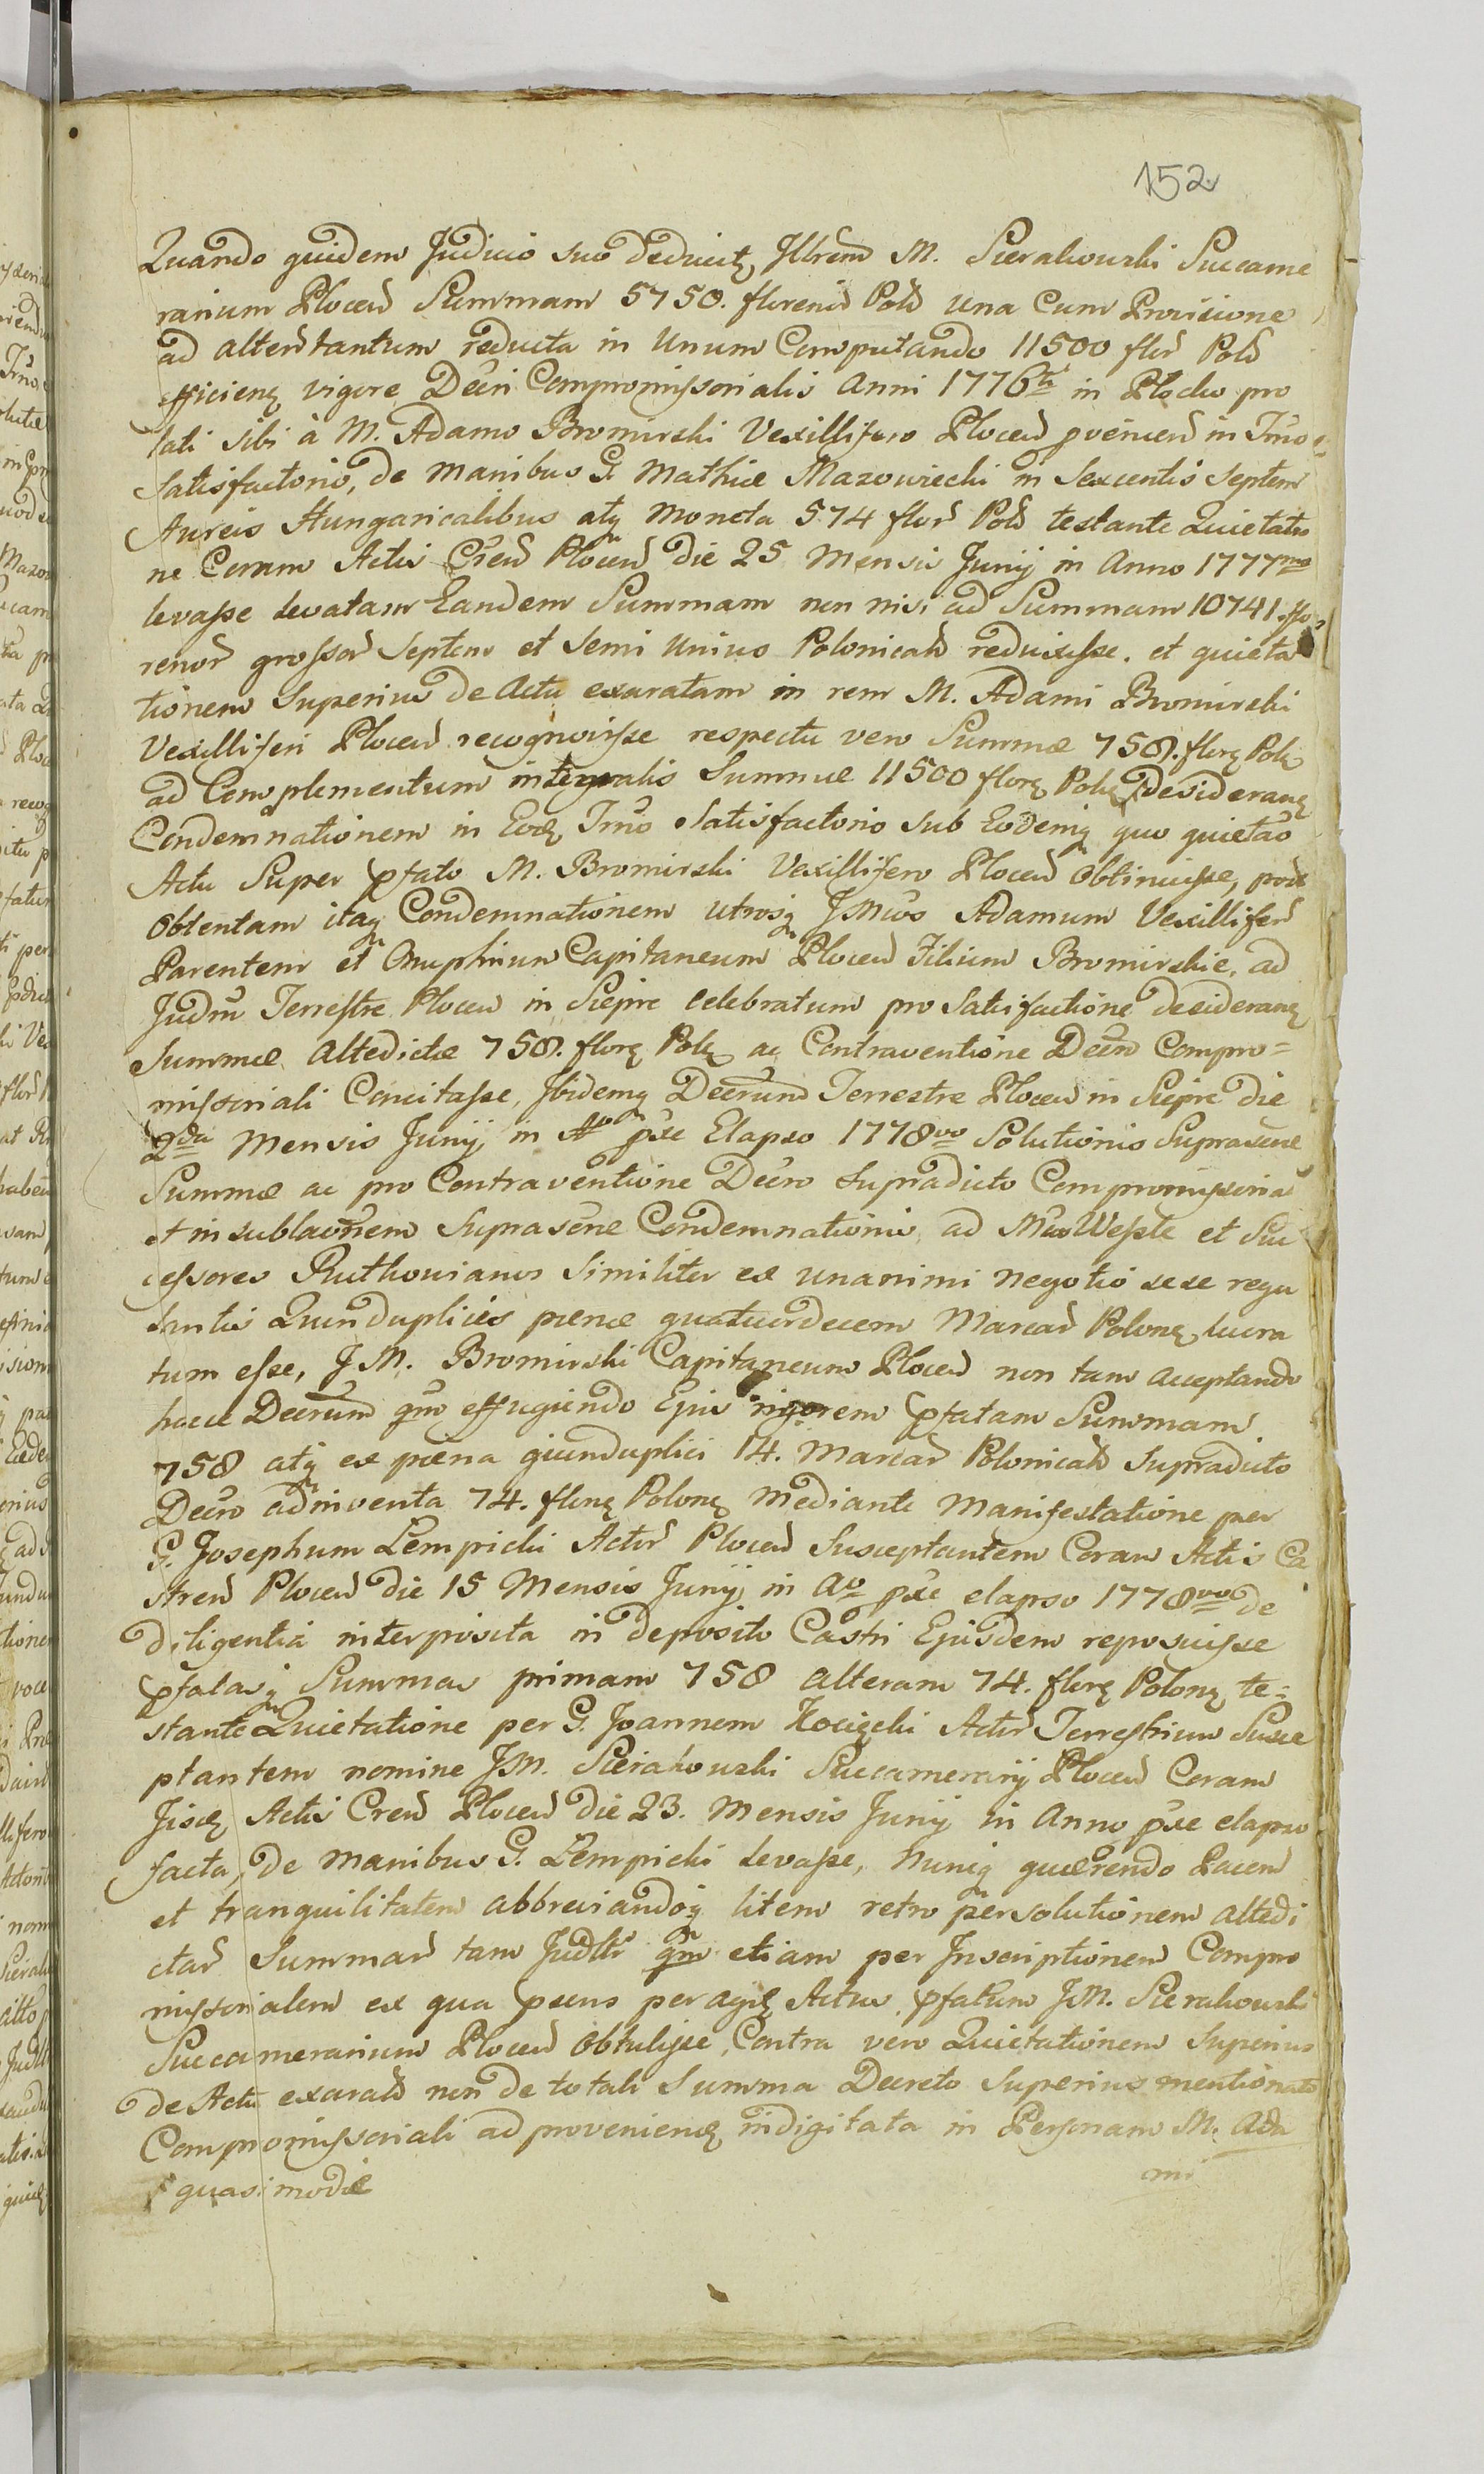 152
Quando quidem Judicio suo deducit, Illrem M. Sierakowski Succame
rarium Plocen Summam 5750. floreno Polo una Cum Provisione
ad altertantum reducta in Unum Computando 11500 flor Polo
efficieng vigore Decri Compromissorialis Anni 1776ti in Plocko pro
lati sibi à M. Adamo Bromirski Vexillifero Plocen provenien in Trno
Satisfactorio, de manibus G. Mathiæ Mazowiecki in Sexcentis Septem
Aureis Hungaricalibus atq moneta 574 flor Polo testante Quietatio
ne Coram Actis Cren Plocen die 25 Mensis Junij in Anno 1777mo
levasse levatam Eandem Summam non nisi ad Summam 10741. flo
renor grossor Septem et Semi unius Polonical reduxisse. et quieta
tionem Superius de Actu exaratam in rem M. Adami Bromirski
Vexilliferi Plocen recognovisse respectu vero Summæ 758. flore Pole
ad Complementum integralis Summæ 11500 flore Pole desiderane
Condemnationem in Eod Trno Satisfactorio sub Eodemq quo quietao
Actu Super pfato M. Bromirski Vexillifero Plocen Obtinuisse, post
Obtentam itaq Condemnationem utrosq JMcos Adamum Vexillifer
Parentem et Onuphrium Capitaneum Plocen Filium Bromirskie, ad
Judm Terrestre Plocen in Sieprc Celebratum pro Satisfactione desiderane
Summæ altedictæ 758. flore Pole ac Contraventione Decro Compro=
missoriali Concitasse, Ibidemq Decrum Terrestre Plocen in Sieprc die
2da Mensis Junij in Ao pxe Elapso 1778vo Solutionis Suprascnæ
Summæ ac pro Contraventione Decro supradicto Compromissoria
et in sublaonem Suprascnæ Condemnationis ad Mcos Wessle et Suc
cessores Rutkovianos Similiter ex unanimi negotio sese regu
lantis Quinduplicis pænæ quatuordecem Marcar Polone lucra
tum esse, J.M. Bromirski Capitaneum Plocen non tam acceptando
hocce Decrum qm effugiendo Ejus rigorem pfatam Summam
758 atq ex pæna quinduplici 14. Marcar Polonical Supradicto
Decro adinventa 74. flore Polone mediante Manifestatione per
G. Josephum Lempicki Actor Plocen Susceptantem Coram Actis Ca
stren Plocen die 15 Mensis Junij in Ao pxe elapso 1778vo de
diligentia interposita in deposito Castri Ejusdem reposuisse
pfatasq Summas primam 758 alteram 74. flore Polone te=
stante Quietatione per G. Joannem Kocięcki Actor Terrestrium Susce
ptantem nomine JM. Sierakowski Succamerarij Plocen Coram
Jisce Actis Cren Plocen die 23. Mensis Junij in Anno pxe elapso
facta, de manibus G. Lempicki levasse, nunq quærendo Pacem
et tranquilitatem abbreviandoq litem retro persolutionem altedi
ctar Summar tam Judltr qm etiam per Inscriptionem Compro
missorialem ex qua pæens peragie Actus, pfatum J.M. Sierakowski
Succamerarium Plocen Obtulisse, Contra vero Quietationem Superius
de Actu exarato non de totali Summa Decreto Superius mentionato
Compromissoriali ad provenieng indigitata in Personam M. Ada
quasi modæ
mi